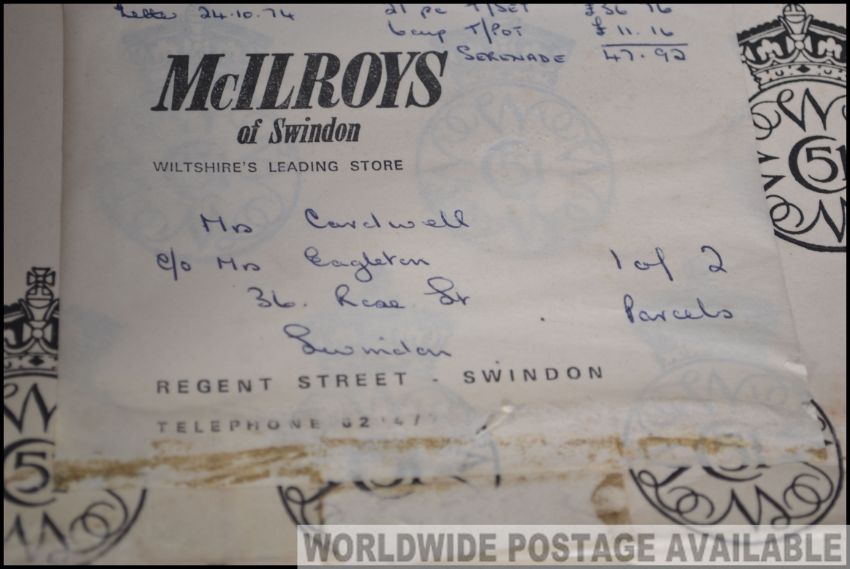 Letter 24.10.74 21 pc T/SET £36 76
6 cup T/POT £11.16
SERENADE 47.92
McILROYS
of Swindon
WILTSHIRE'S LEADING STORE
Mrs Cardwell
c/o Mrs Eagleton 1 of 2
36. Rose St Parcels
Swindon
REGENT STREET - SWINDON
TELEPHONE
W
C51
W
W
C51
W
WORLDWIDE POSTAGE AVAILABLE